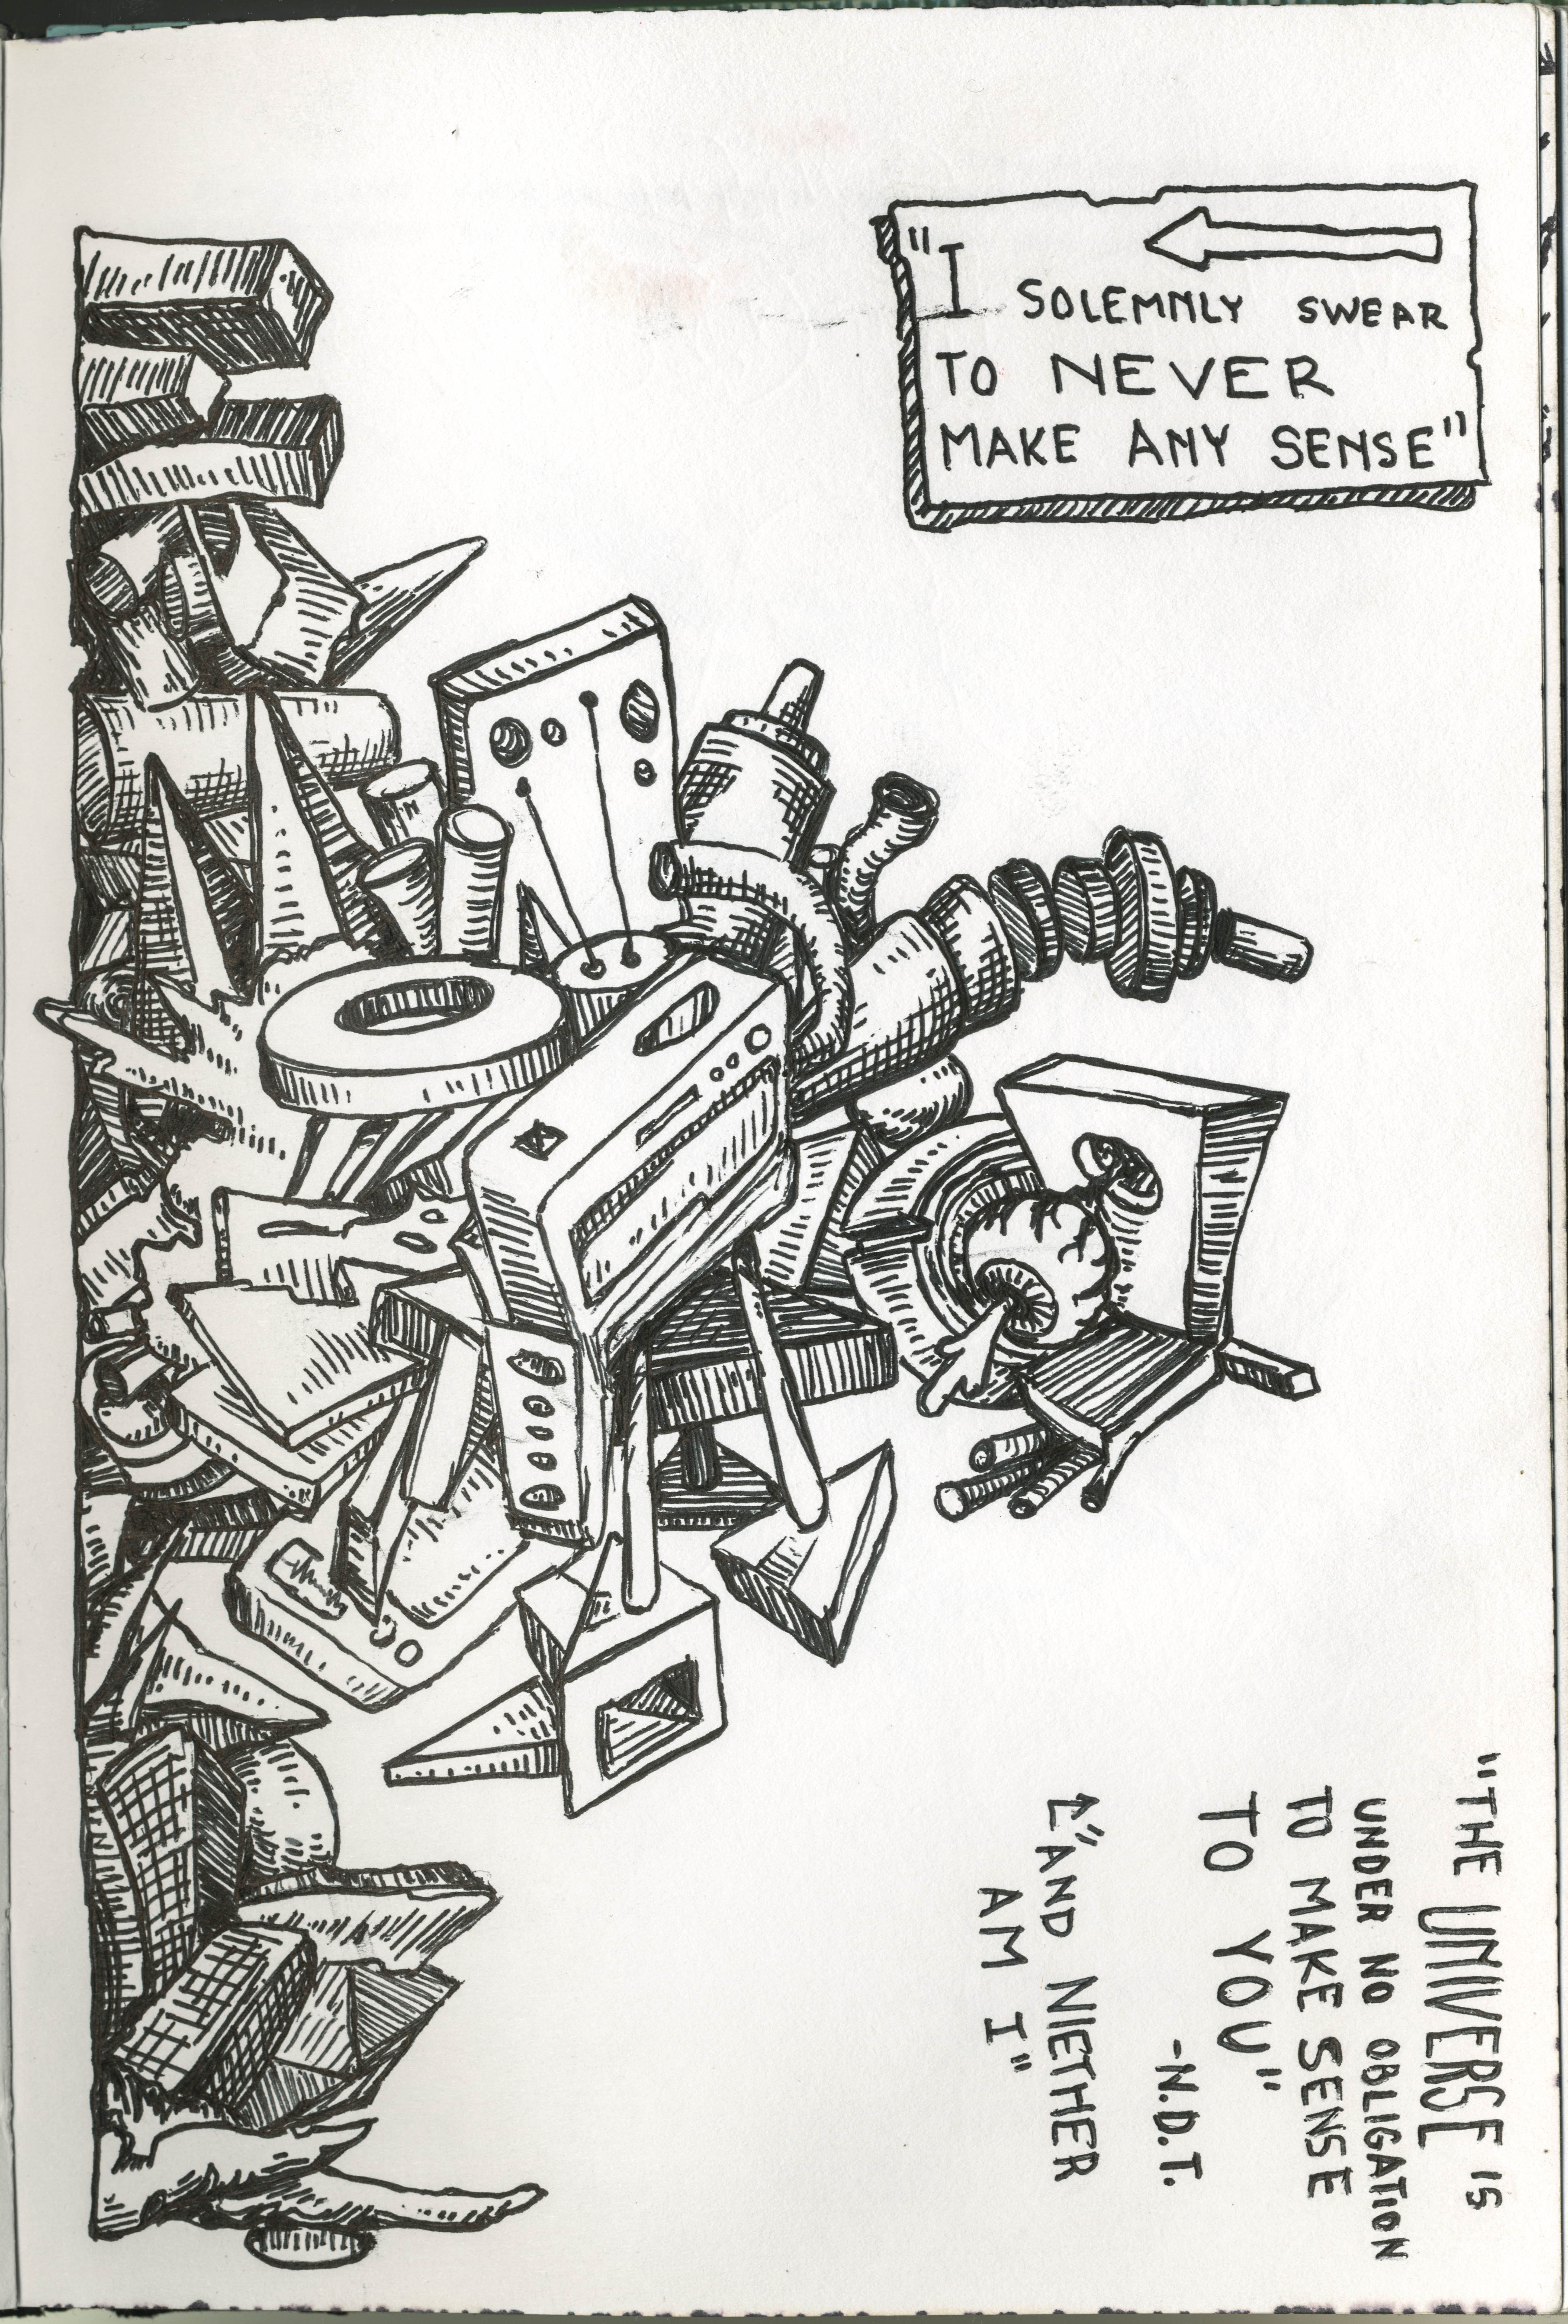 "I SOLEMNLY SWEAR
TO NEVER
MAKE ANY SENSE"
"THE UNIVERSE IS
UNDER NO OBLIGATION
TO MAKE SENSE
TO YOU"
-N.D.T.
"AND NIETHER
AM I"